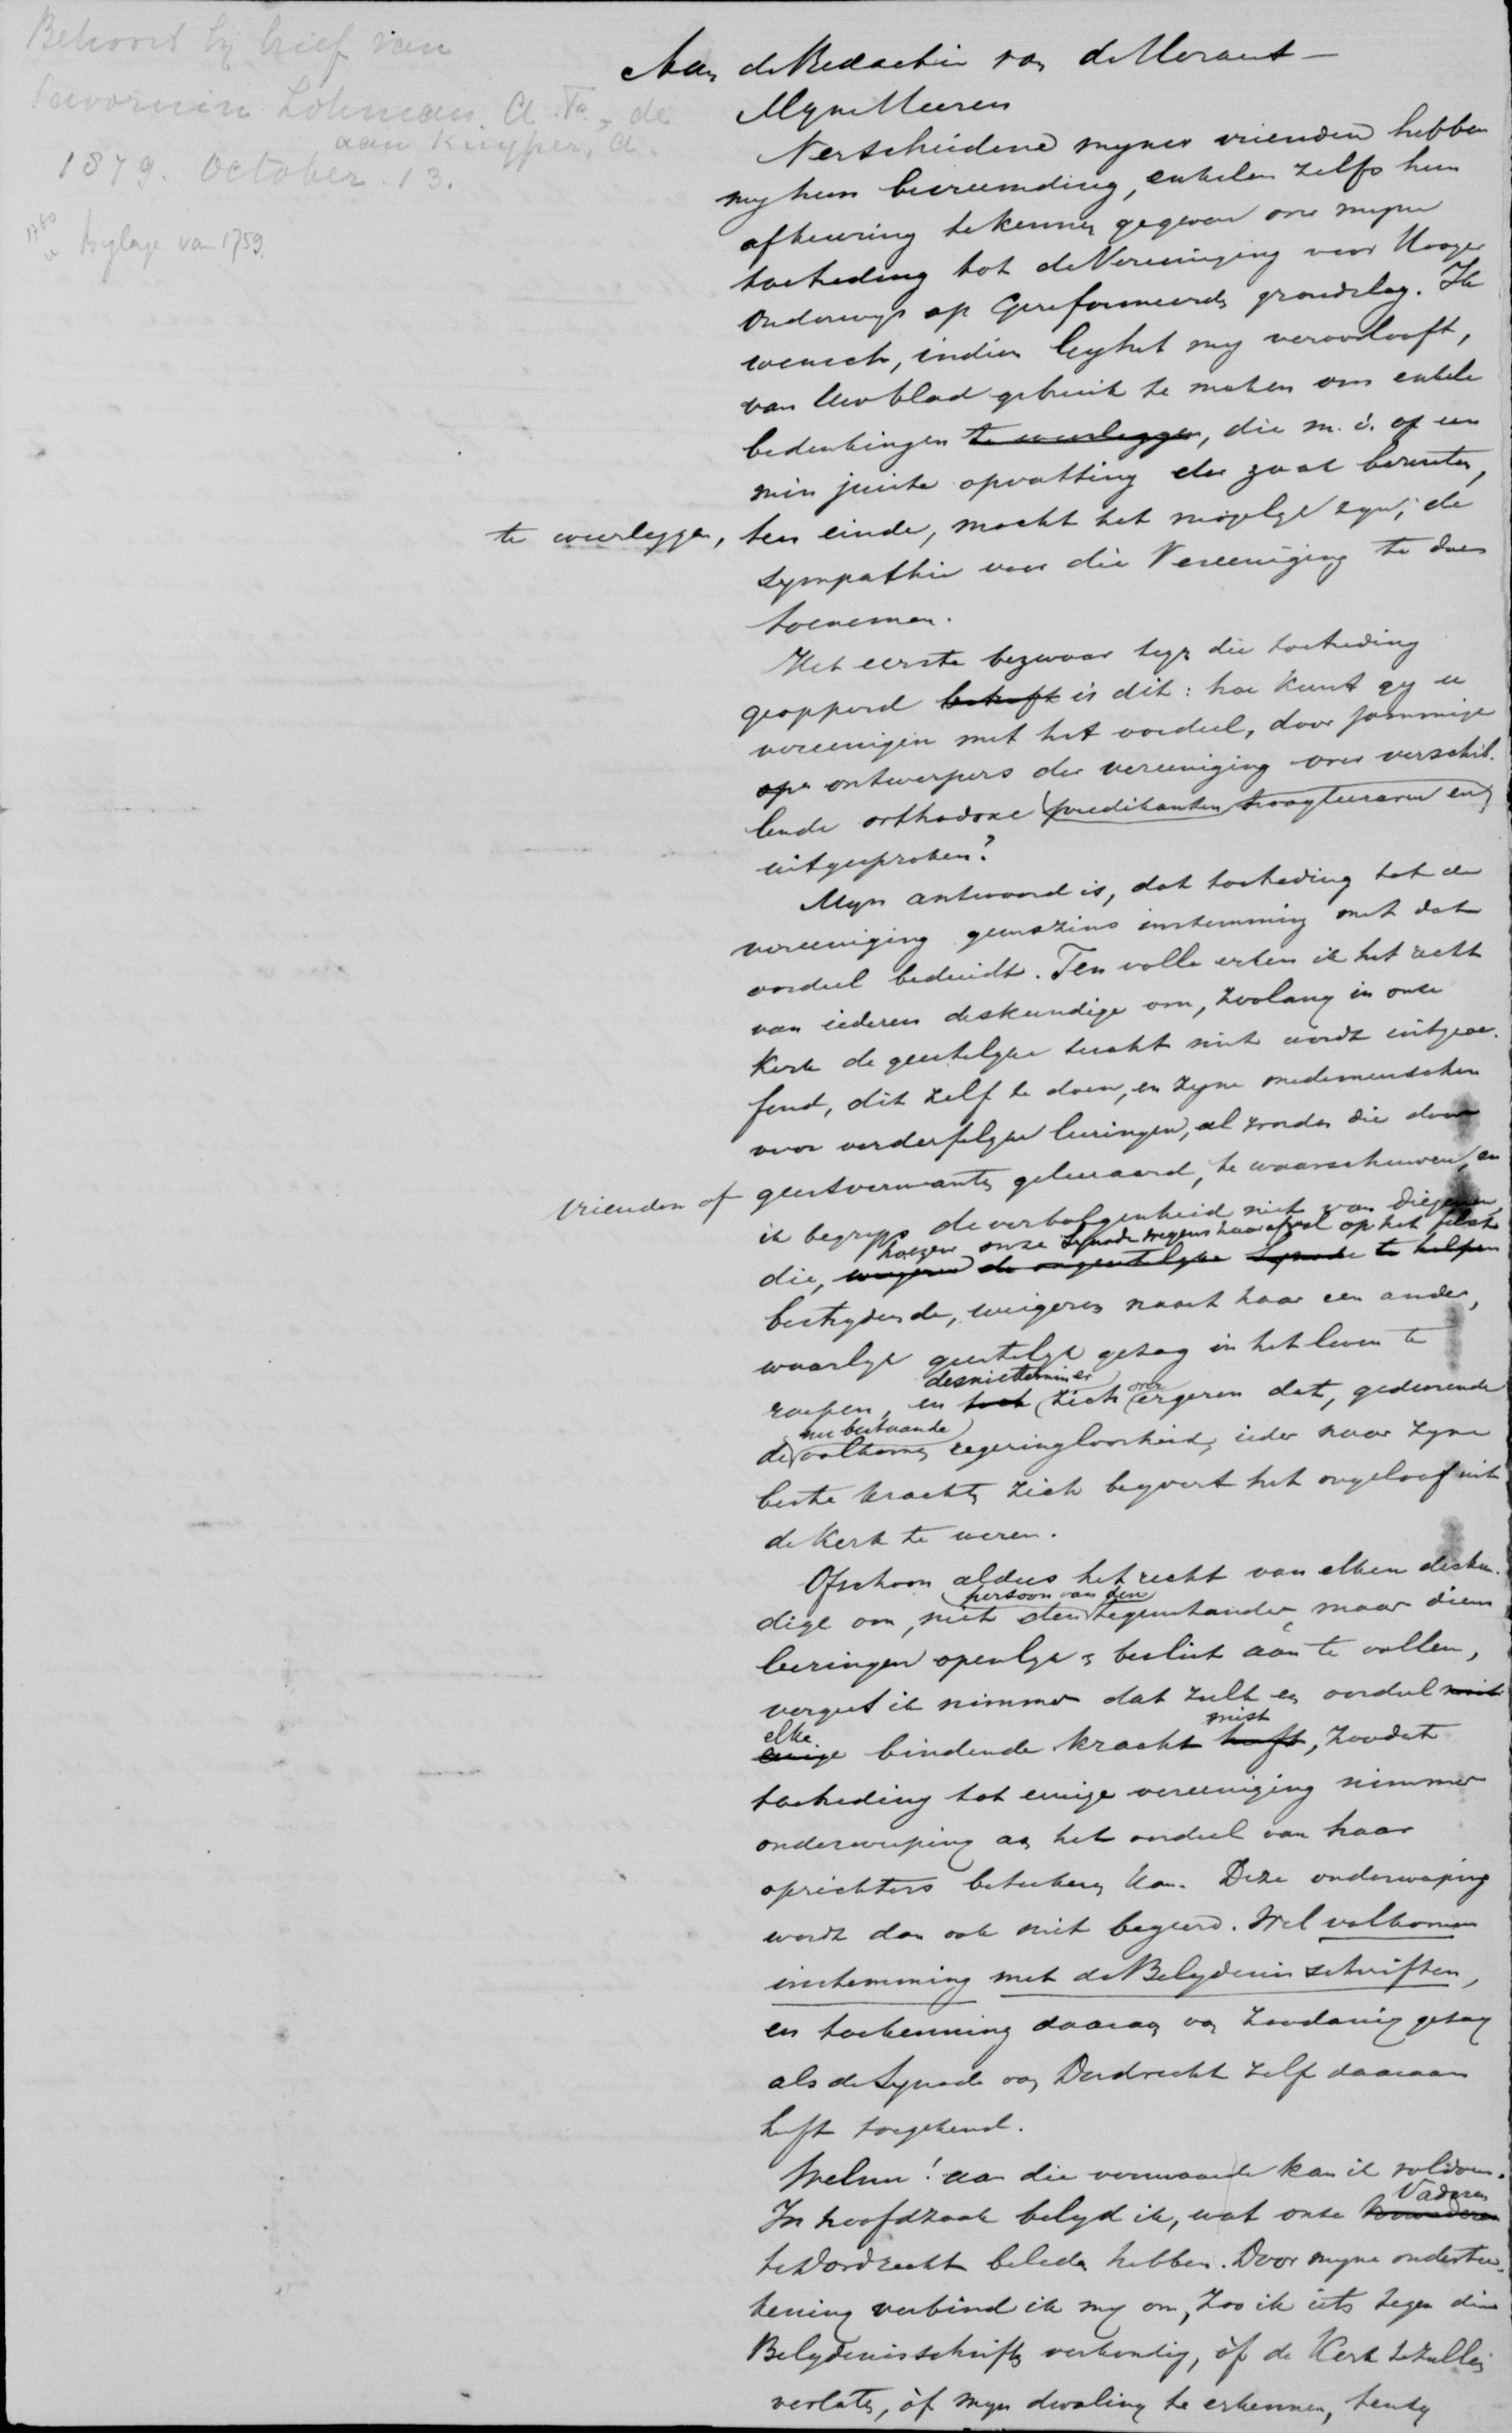 Behoort bij brief van
Savornin Lohman, A. F. de
aan Kuyper, A.
1879. October. 13.
1760
bylage van 1759.
Aan de Redactie van de Heraut —
Myne Heeren
Verscheidene myner vrienden hebben
my hun bevreemding, enkelen zelfs hun
afkeuring te kennen gegeven over myne
toetreding tot de Vereeniging voor Hooger
Onderwys op Gereformeerden grondslag. Ik
wensch, indien Gy het my veroorlooft,
van Uw blad gebruik te maken om enkele
bedenkingen te weerleggen, die m. i. op een
min juiste opvatting der zaak berusten,
te weerleggen, ten einde, mocht het mogelyk zyn, de
sympathie voor die Vereeniging te doen
toenemen.
Het eerste bezwaar tegen die toetreding
geopperd betreft is dit: hoe kunt gy u
vereenigen met het oordeel, door sommige
op ontwerpers der vereeniging over verschil-
lende orthodoxe predikanten hoogleeraren en
uitgesproken?
Myn antwoord is, dat toetreding tot de
vereeniging geenszins instemming met dat
oordeel beduidt. Ten volle erken ik het recht
van iederen deskundige om, zoolang in onze
Kerk de geestelyke tucht niet wordt uitgeoe-
fend, dit zelf te doen, en zyne medemenschen
voor verderfelyke leeringen, al worden die door
vrienden of geestverwanten geleeraard, te waarschuwen, en
ik begryp de verbolgenheid niet van diegenen,
hoezeer onze Synode wegens haar afval op het felst
die, wegens de ongeestelyke Synode te helpen
bestrydende, weigeren naast haar een ander,
waarlyk geestelyk gezag in het leven te
desniettemin er
roepen, en toch zich over ergeren dat, gedurende
nu bestaande
de volkomen regeringloosheid, ieder naar zyne
beste krachten zich beyvert het ongeloof uit
de Kerk te weren.
Ofschoon aldus het recht van elken desku-
persoon van den
dige om, niet den tegenstander, maar diens
leeringen openlyk en beslist aan te vallen,
vergeet ik nimmer dat zulk een oordeel niet
elke mist
eenige bindende kracht heeft, zoodat
toetreding tot eenige vereeniging nimmer
onderwerping aan het oordeel van haar
oprichters beteekenen kan. Deze onderwerping
wordt dan ook niet begeerd. Wel volkomen
instemming met de Belydenisschriften,
en toekenning daaraan van zoodanig gezag
als de Synode van Dordrecht zelf daaraan
heeft toegekend.
Welnu! aan die voorwaarde kan ik voldoen.
Vaderen
In hoofdzaak belyd ik, wat onze
te Dordrecht beleden hebben. Door myne onderteе-
kening verbind ik my om, zoo ik iets tegen die
Belydenisschriften verkondig, òf de Kerk te zullen
verlaten, òf myn dwaling te erkennen, tenzy